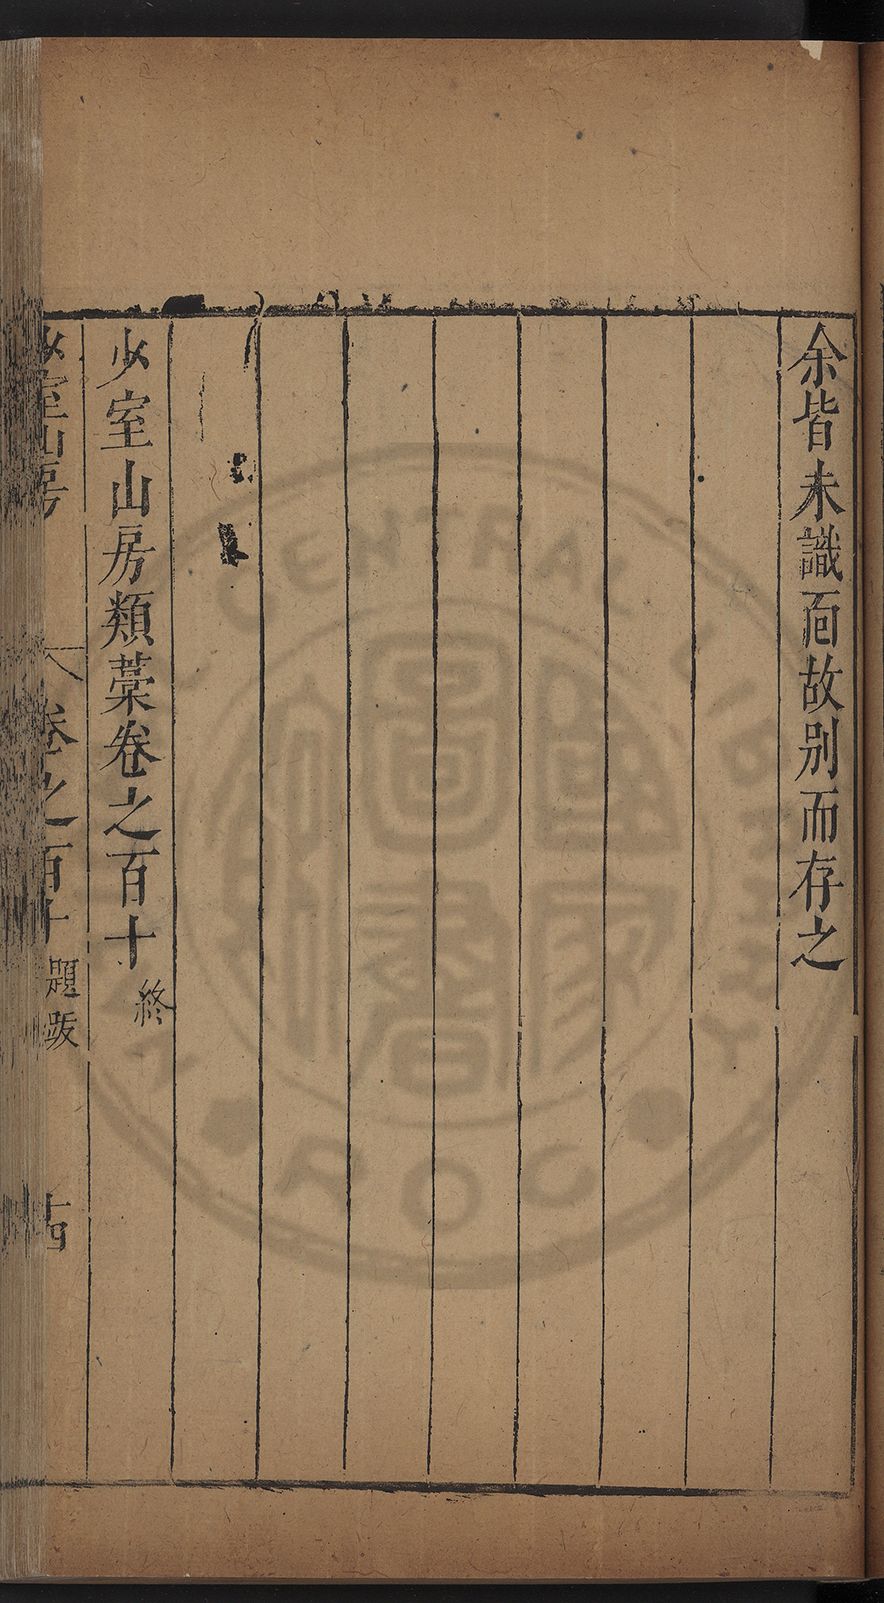 余皆未識面故別而存之
少室山房類藁卷之百十終
少室山房 卷之百十 題跋 十四